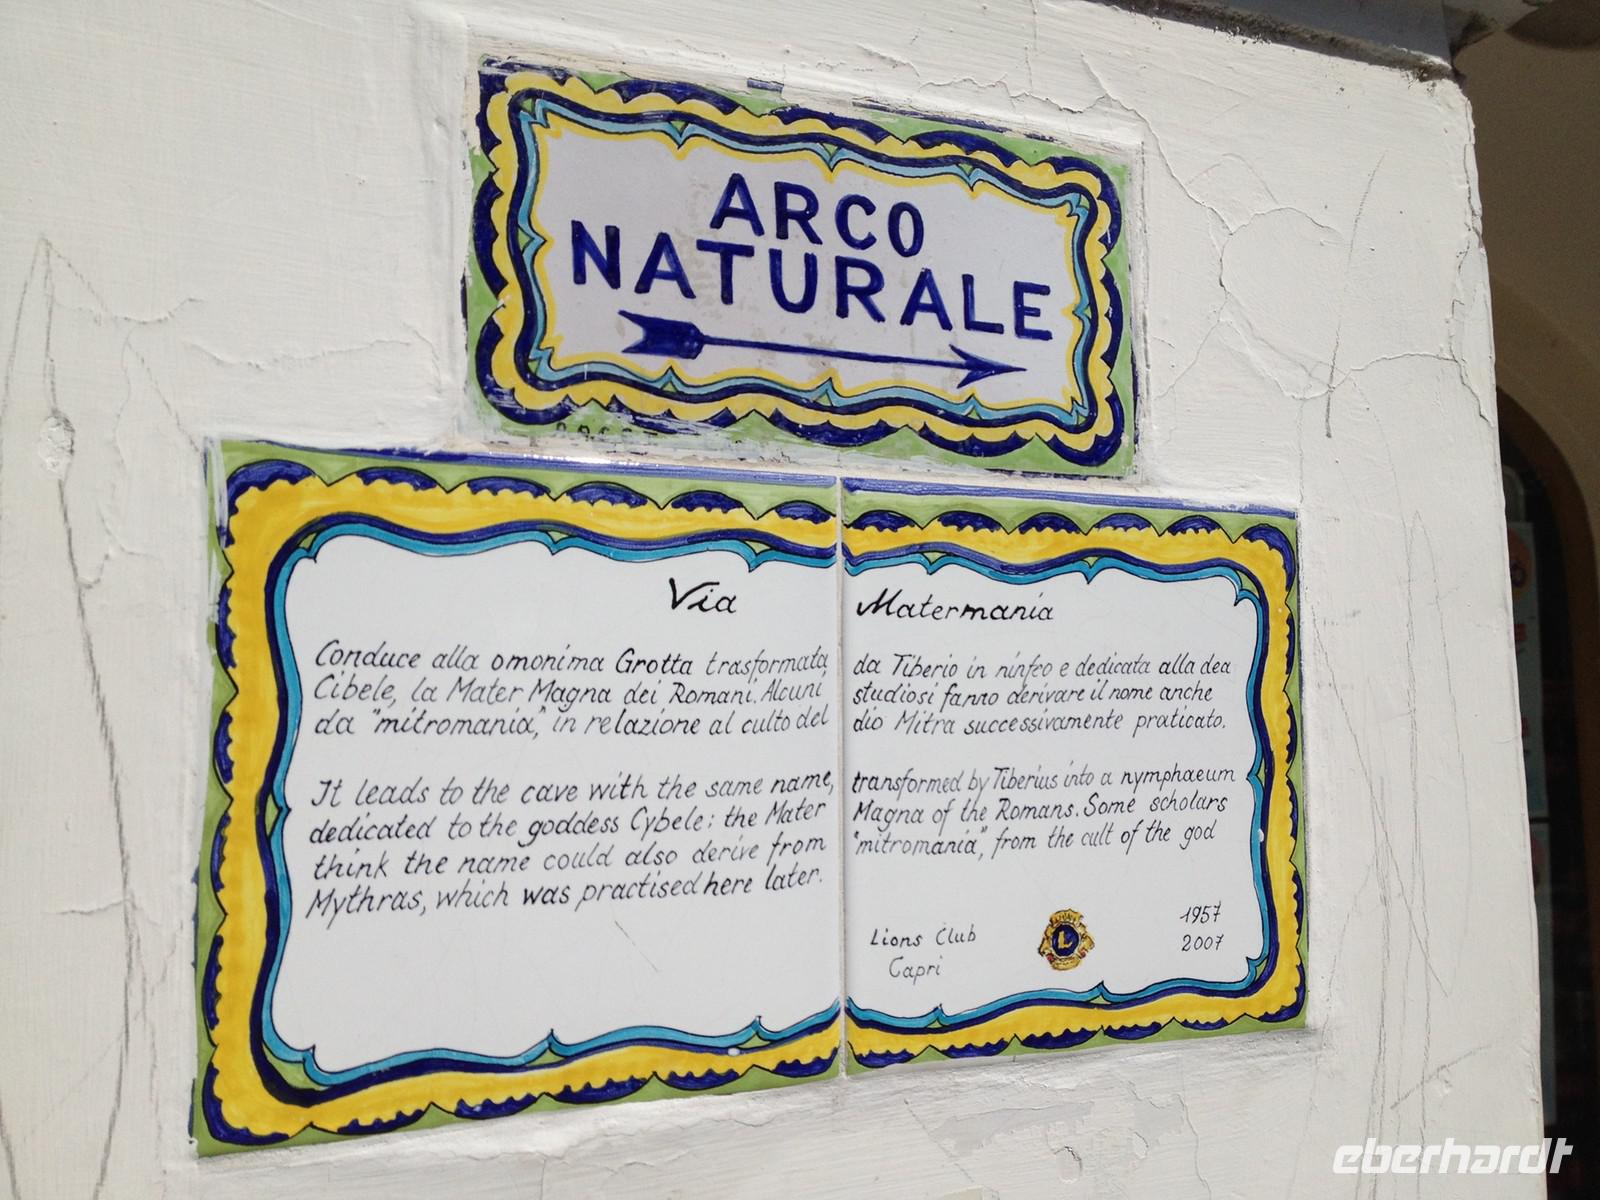 ARCO
NATURALE
Via Matermania
Conduce alla omonima Grotta trasformata da Tiberio in ninfeo e dedicata alla dea
Cibele, la Mater Magna dei Romani. Alcuni studiosi fanno derivare il nome anche
da "mitromania", in relazione al culto del dio Mitra successivamente praticato.
It leads to the cave with the same name, transformed by Tiberius into a nymphaeum
dedicated to the goddess Cybele: the Mater Magna of the Romans. Some scholars
think the name could also derive from "mitromania", from the cult of the god
Mythras, which was practised here later.
Lions Club
Capri
L
1957
2007
eberhardt